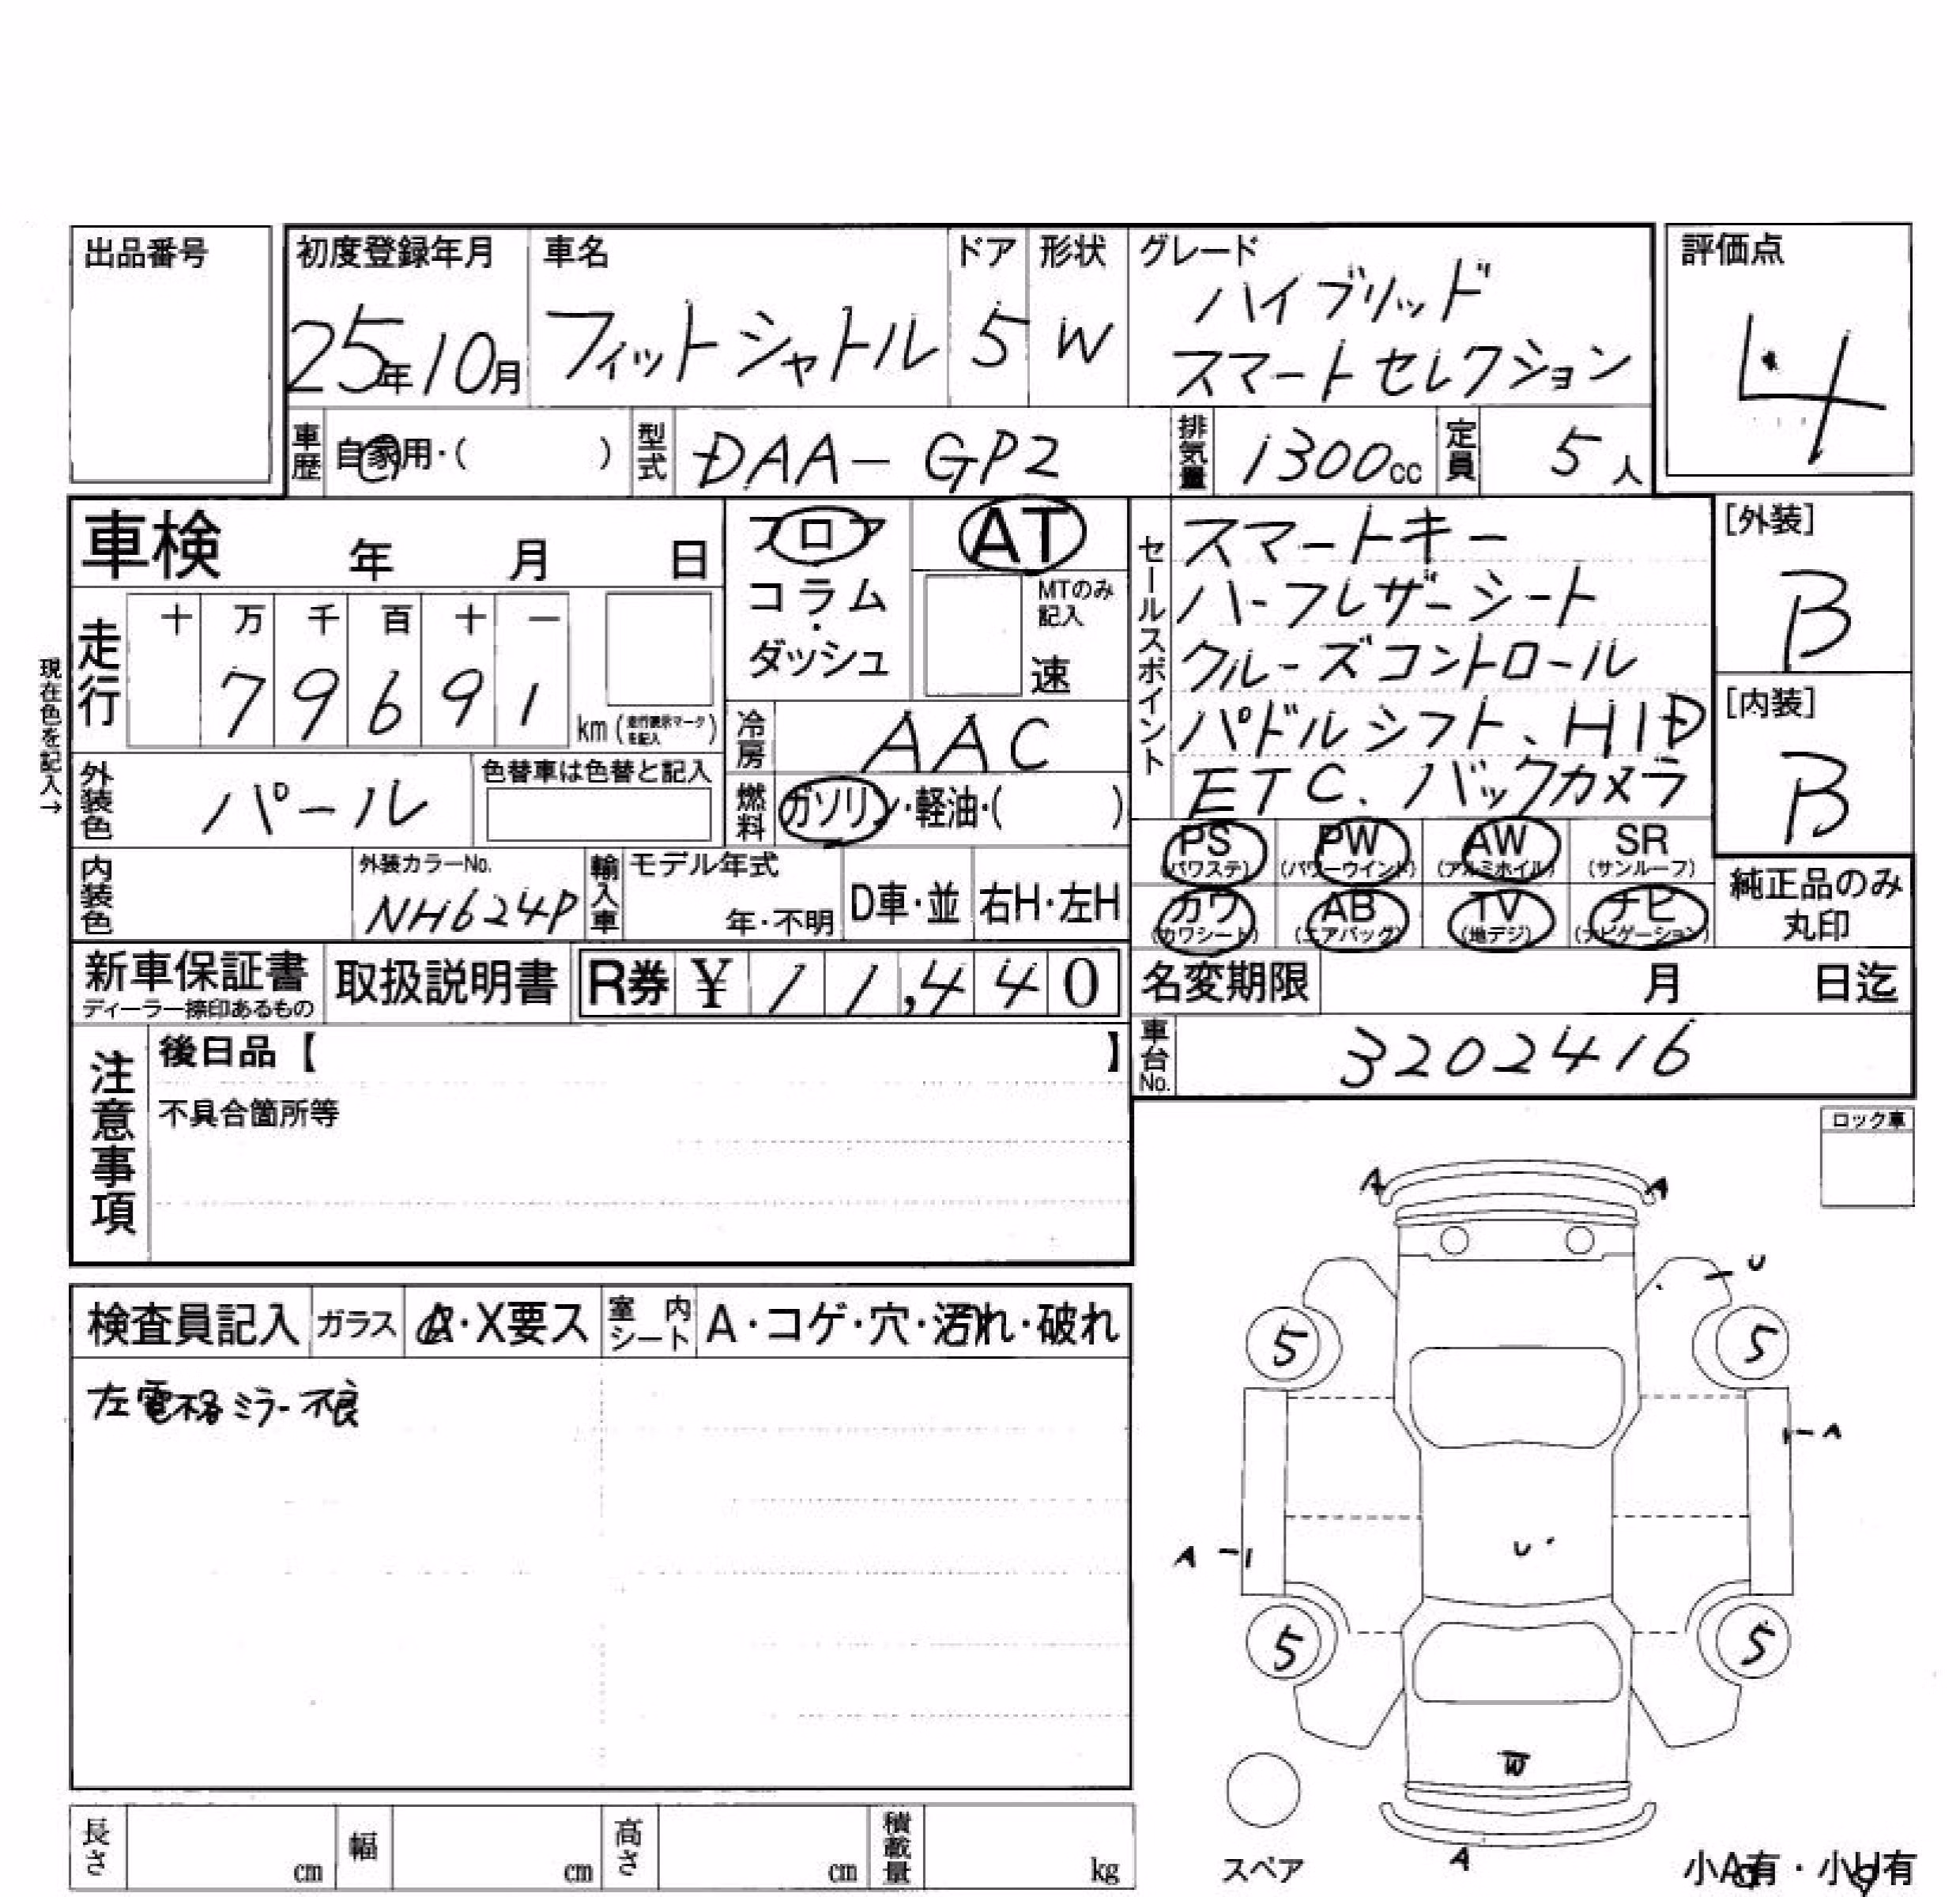 出品番号
初度登録年月 車名 ドア 形状 グレード 評価点
ハイブリッド
25年10月 フィットシャトル 5 W スマートセレクション 4
車歴 自家用・( ) 型式 DAA-GP2 排気量 1300cc 定員 5人
車検 年 月 日 フロア AT セールスポイント スマートキー [外装]
コラム・ MTのみ記入 ハーフレザーシート B
ダッシュ 速 クルーズコントロール
走行 十 万 千 百 十 一
79691 km (走行表示マークを記入) 冷房 AAC パドルシフト、HID [内装]
現在色を記入→
外装色 パール 色替車は色替と記入 燃料 ガソリン・軽油・( ) ETC、バックカメラ B
PS (パワステ) PW (パワーウインド) AW (アルミホイル) SR (サンルーフ)
内装色 外装カラーNo. NH624P 輸入車 モデル年式 年・不明 D車・並 右H・左H
カワ (カワシート) AB (エアバッグ) TV (地デジ) ナビ (ナビゲーション) 純正品のみ
丸印
新車保証書 取扱説明書 R券 ¥ 11,440 名変期限 月 日迄
ディーラー捺印あるもの
注意事項 後日品【 】 車台No. 3202416
不具合箇所等
ロック車
A A
U
検査員記入 ガラス A・X要ス 室内シート A・コゲ・穴・汚れ・破れ
5 5
左電格ミラー不良
A
A U
5 5
W
長さ cm 幅 cm 高さ cm 積載量 kg
スペア A 小A有・小U有